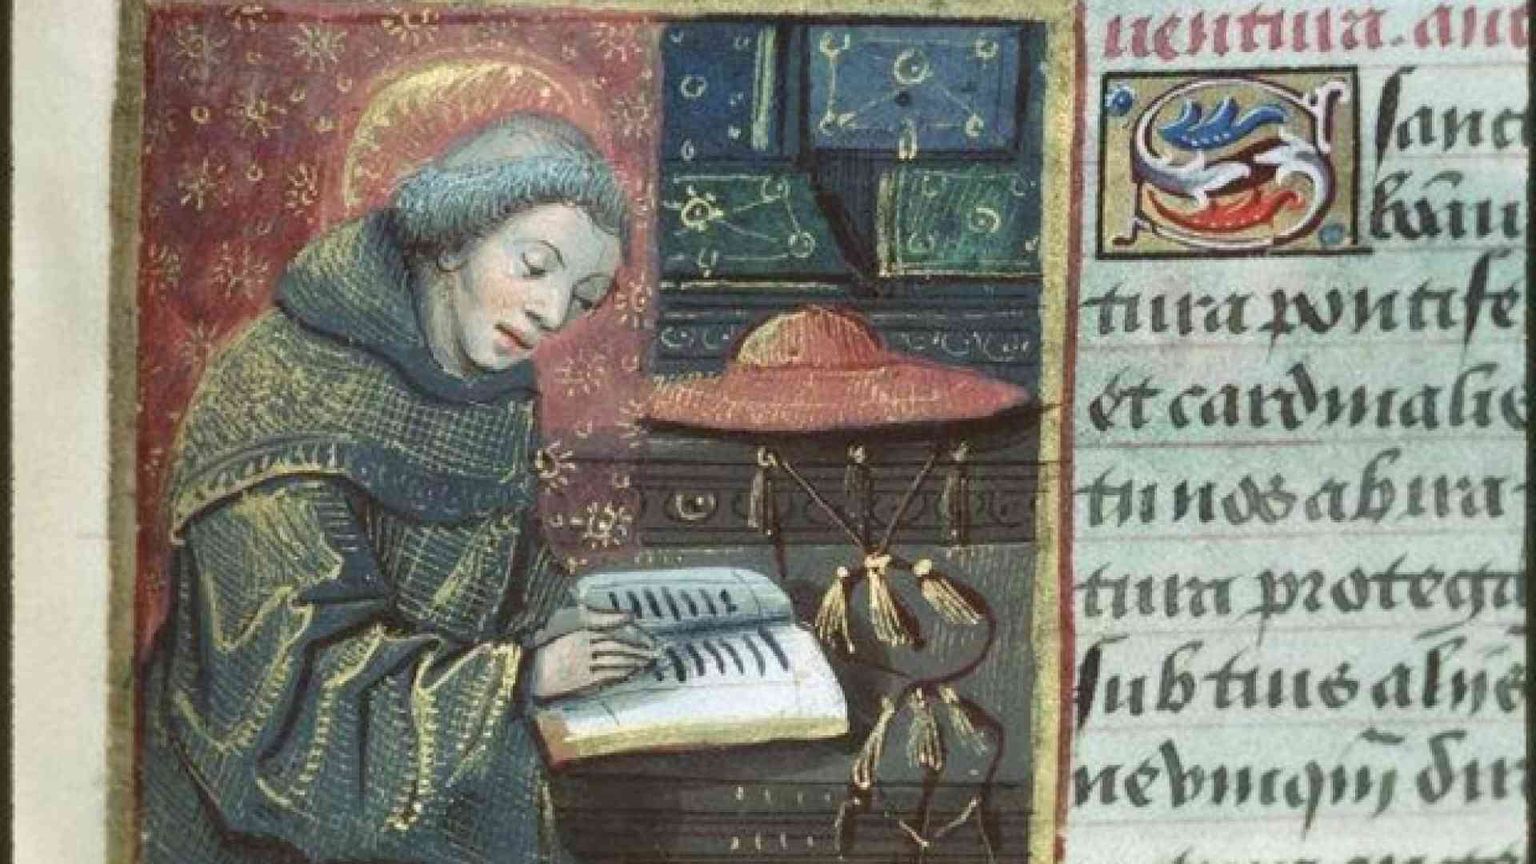 uentura. ant
Sanct
bo̅au
tura pontife
et cardinalis
tu nos ab ira
tura protega
sub tuis aliis
ne